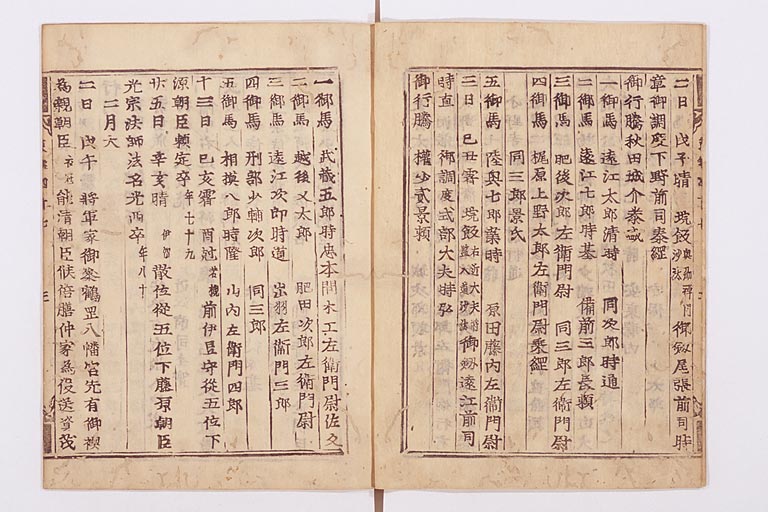 二日 戊子晴 垸飯 奥州禅門沙汰 御劔尾張前司時
章御調度下野前司泰経
御行騰秋田城介泰盛
一御馬 遠江太郎清時 同次郎時通
二御馬 遠江七郎時基 備前三郎長頼
三御馬 肥後次郎左衛門尉 同三郎左衛門尉
四御馬 梶原上野太郎左衛門尉景経
同三郎景氏
五御馬 陸奥七郎業時 原田藤内左衛門尉
三日 己丑霽 垸飯 御劔遠江前司
時直 御調度式部大夫時弘
御行騰 權少貳景頼
一御馬 武蔵五郎時忠本間木工左衛門尉佐久
二御馬 越後又太郎 肥田次郎左衛門尉
三御馬 遠江次郎時通 出羽左衛門三郎
四御馬 刑部少輔次郎 同三郎
五御馬 相摸八郎時隆 山内左衛門四郎
十三日 己亥霽 酉過 前伊豆守從五位下
源朝臣頼定卒 年七十九
廿五日辛亥晴 伊賀 散位從五位下藤原朝臣
光宗法師法名光西卒 年八十
二月大
二日 戊午 将軍家御參鶴罡八幡宮先有御禊
為親朝臣 衣冠 能清朝臣候倍膳仲家為役送資茂